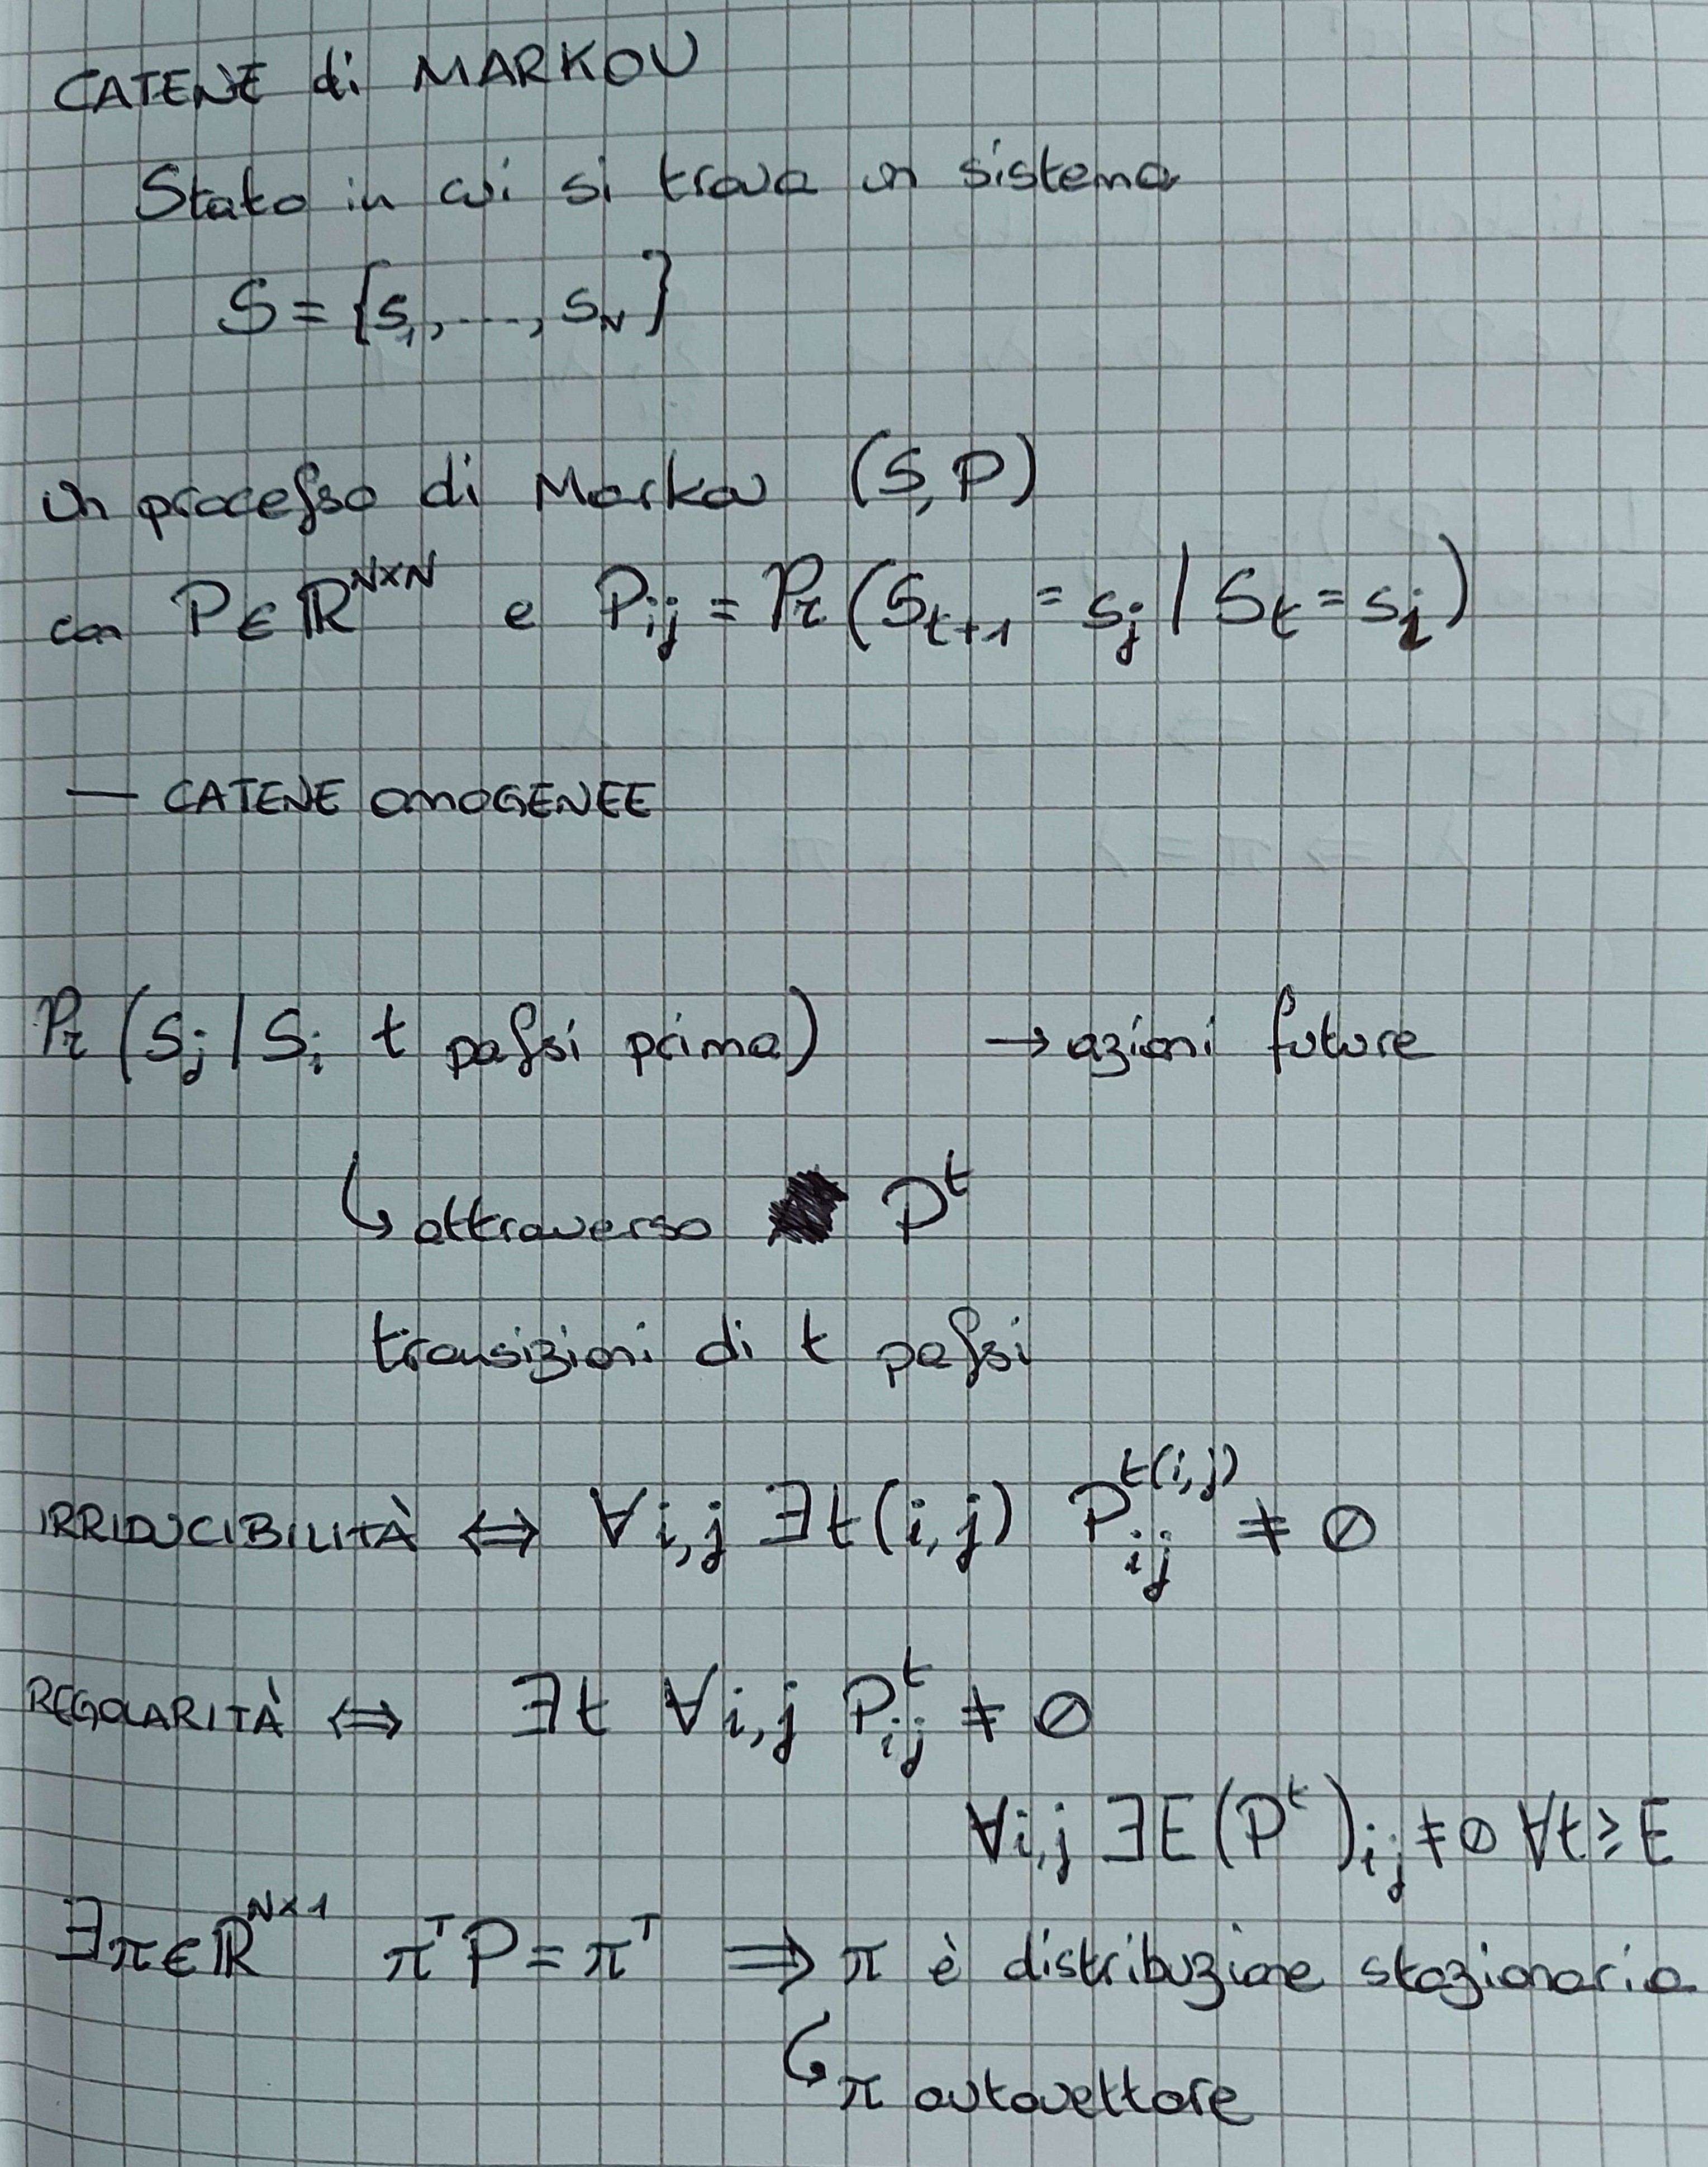 CATENE di MARKOV
Stato in cui si trova un sistema
S = {s₁, ..., s_N}
un processo di Markov (S, P)
con P ∈ ℝ^{N×N} e P_{ij} = Pr (S_{t+1} = s_j | S_t = s_i)
— CATENE OMOGENEE
Pr (S_j | S_i t passi prima) → azioni future
↳ attraverso P^t
transizioni di t passi
IRRIDUCIBILITÀ ⇔ ∀i,j ∃t(i,j) P_{ij}^{t(i,j)} ≠ 0
REGOLARITÀ ⇔ ∃t ∀i,j P_{ij}^t ≠ 0
∀i,j ∃E (P^t)_{ij} ≠ 0 ∀t ≥ E
∃π ∈ ℝ^{N×1} π^T P = π^T ⟹ π è distribuzione stazionaria
↳ π autovettore